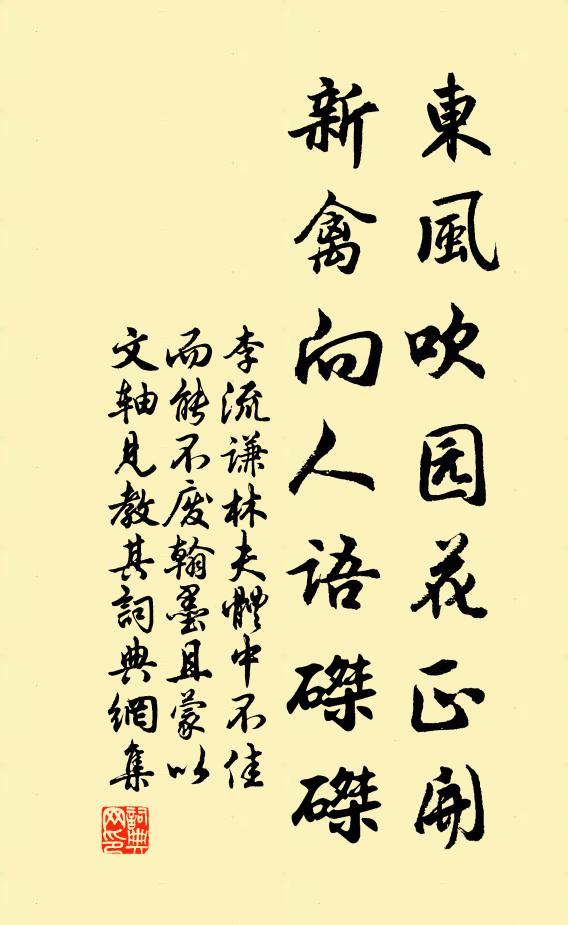 東風吹园花正開
新禽向人語磔磔
李流謙林夫體中不佳
而能不废翰墨且蒙以
文轴見教其詞典網集
詞典
网印